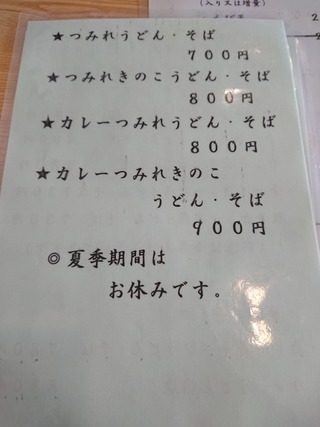 (入り又は増量)
★つみれうどん・そば
700円
★つみれきのこうどん・そば
800円
★カレーつみれうどん・そば
800円
★カレーつみれきのこ
うどん・そば
900円
◎夏季期間は
お休みです。